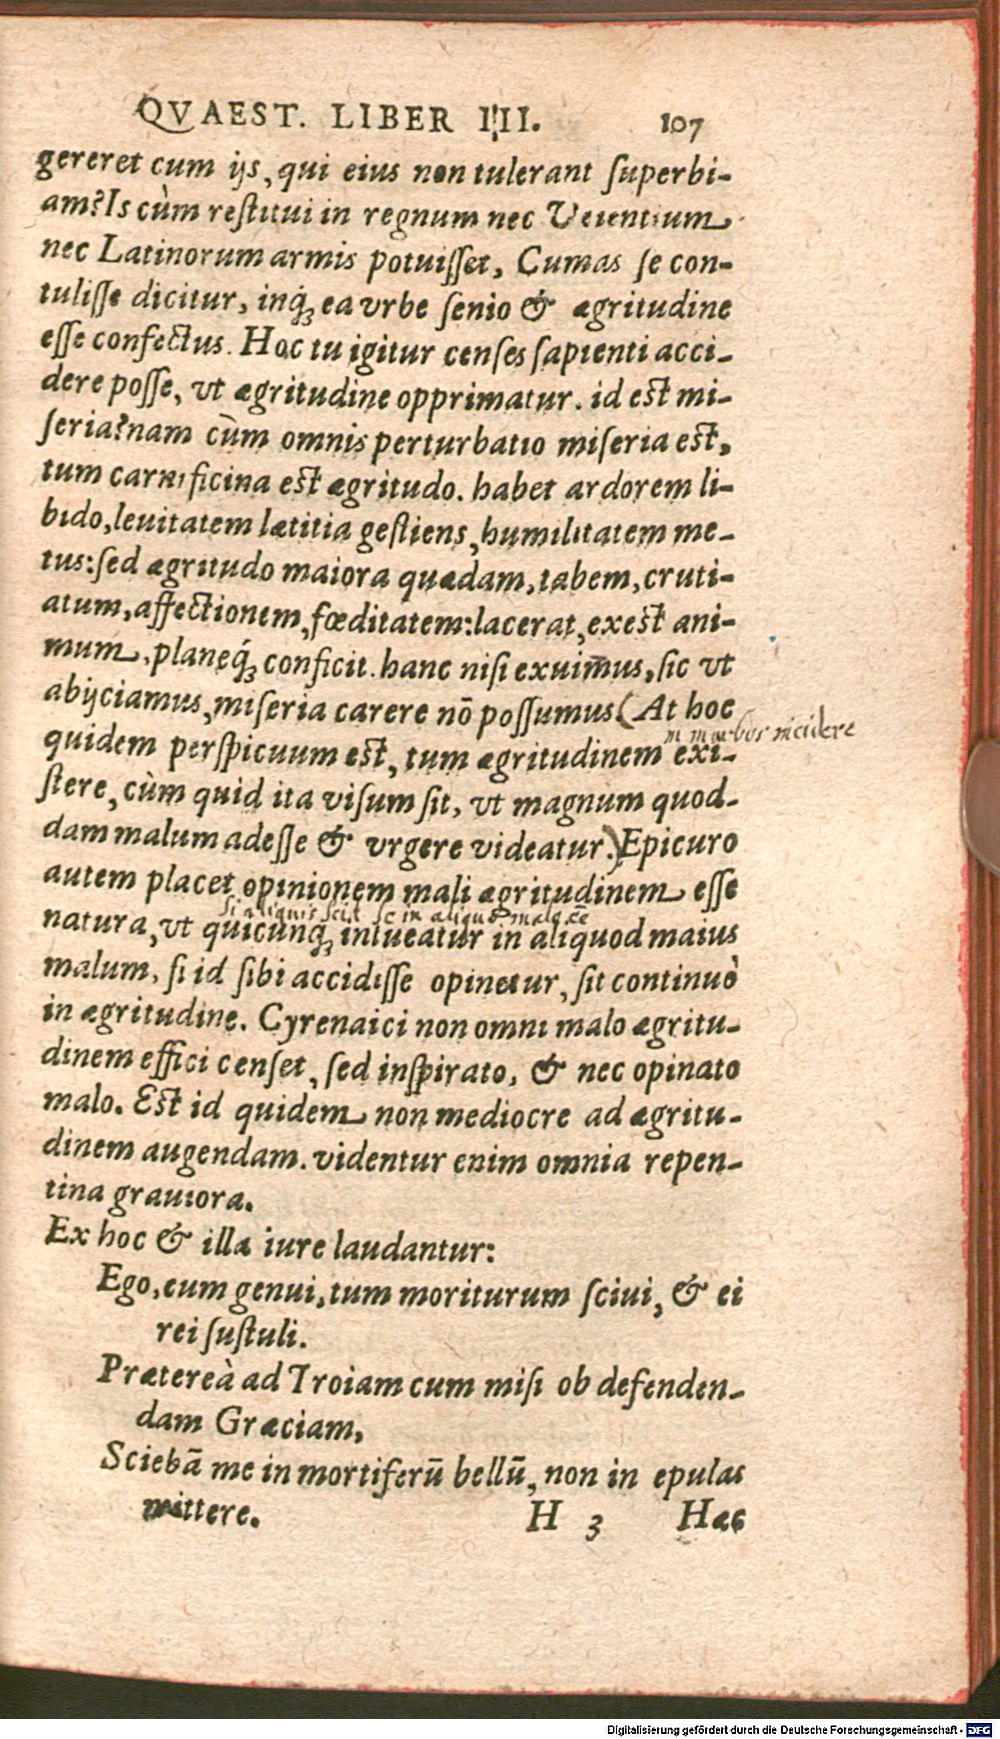 QVAEST. LIBER IIII. 107
gereret cum ijs, qui eius non tulerant ſuperbi-
am? Is cùm reſtitui in regnum nec Veientium
nec Latinorum armis potuiſſet, Cumas ſe con-
tuliſſe dicitur, inq́ꝫ ea vrbe ſenio & ægritudine
eſſe confectus. Hoc tu igitur cenſes ſapienti acci-
dere poſſe, vt ægritudine opprimatur. id est mi-
ſeria? nam cùm omnis perturbatio miſeria est,
tum carnificina est ægritudo. habet ardorem li-
bido, leuitatem lætitia geſtiens, humilitatem me-
tus: ſed ægritudo maiora quædam, tabem, cruti-
atum, affectionem, fœditatem: lacerat, exest ani-
mum, planeq́ꝫ conficit. hanc niſi exuimus, ſic vt
abijciamus, miſeria carere nō poſſumus. (At hoc
in morbos incidere
quidem perſpicuum est, tum ægritudinem exi-
ſtere, cùm quid ita viſum ſit, vt magnum quod-
dam malum adeſſe & vrgere videatur.) Epicuro
autem placet opinionem mali ægritudinem eſſe
si aliquis scit se in aliquo malo eē
natura, vt quicunq́ꝫ intueatur in aliquod maius
malum, ſi id ſibi accidiſſe opinetur, ſit continuò
in ægritudine. Cyrenaici non omni malo ægritu-
dinem effici cenſet, ſed inſpirato, & nec opinato
malo. Est id quidem non mediocre ad ægritu-
dinem augendam. videntur enim omnia repen-
tina grauiora.
Ex hoc & illa iure laudantur:
Ego, cum genui, tum moriturum ſciui, & ei
rei ſuſtuli.
Prætereà ad Troiam cum miſi ob defenden-
dam Græciam,
Sciebā me in mortiferū bellū, non in epulas
mittere. H 3 Hæc
Digitalisierung gefördert durch die Deutsche Forschungsgemeinschaft - DFG